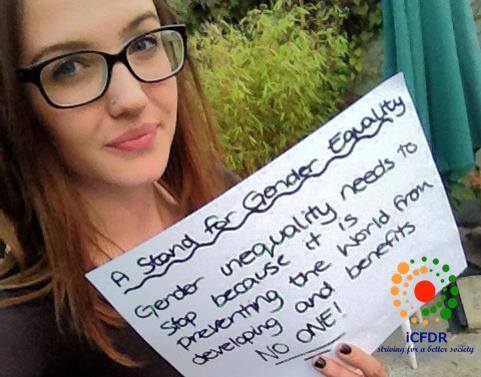 A Stand for Gender Equality
Gender inequality needs to
stop because it is
preventing the World from
developing and benefits
NO ONE!
iCFDR
striving for a better society